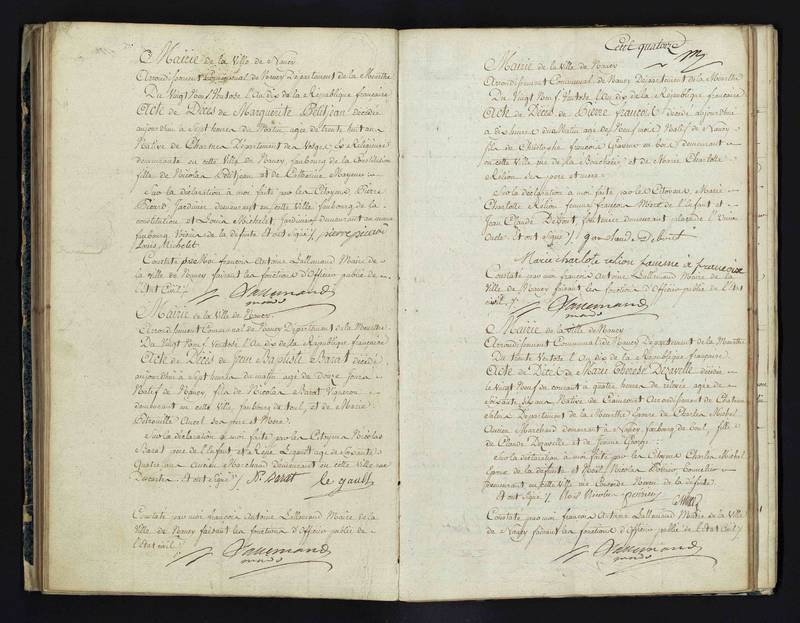 Mairie de la Ville de Nancy
Arrondissement Communal de Nancy Département de la Meurthe
Du Vingt Neuf Ventose l'An dix de la République française
Acte de Décès de Marguerite Petitjean décédée
aujourd'hui a Sept heures du Matin agée de trente huit ans
Native de Charmes Département des Vosges Ex Religieuse
demeurante en cette Ville de Nancy, faubourg de la Constitution
fille de Nicolas Petitjean et de Catherine
Sur la déclaration à moi faite par les Citoyens Pierre
Jardinier demeurant en cette Ville faubourg de la
constitution et Louis Michelet, Jardinier demeurant au meme
faubourg Voisins de la defunte et ont signé
Louis Michelet
Constaté par Moi françois Antoine Lallemand Maire de
la Ville de Nancy faisant les fonctions d'Officier public de
l'Etat Civil
Lallemand
Mairie de la Ville de Nancy
Arrondissement Communal de Nancy Département de la Meurthe
Du Vingt Neuf Ventose l'An dix de la République française
Acte de Décès de Jean Baptiste Barat décédé
aujourd'hui a Sept heures du matin agé de douze Jours
Natif de Nancy, fils de Nicolas Barat Vigneron
demeurant en cette Ville, faubourg de toul, et de Marie
Petronille ses pere et Mere
Sur la déclaration à moi faite par les Citoyens Nicolas
Barat pere de l'Enfant et agé de Soixante
Quatre ans Ancien Marchand demeurant en cette Ville rue
et ont signé N. Barat le gault
Constaté par moi françois Antoine Lallemand Maire de la
Ville de Nancy faisant les fonctions d'Officier public de
l'Etat civil
Lallemand
Cent quatorze
Mairie de la Ville de Nancy
Arrondissement Communal de Nancy Département de la Meurthe
Du Vingt Neuf Ventose l'An dix de la République francaise
Acte de Décès de Pierre françois décédé aujourd'hui
a dix heures du Matin agé de Neuf mois Natif de Nancy
fils de Christophe françois Graveur en bois demeurant
en cette Ville rue de la et de Marie Charlotte
Relion ses pere et mere
Sur la déclaration à moi faite par la Citoyenne Marie
Charlotte Relion femme françois Mere de l'Enfant et
Jean Claude demeurant place de
et ont signé
Marie charlote relion femme françois
Constaté par moi françois Antoine Lallemand Maire de la
Ville de Nancy faisant les fonctions d'Officier public de l'Etat
civil
Lallemand
Mairie de la Ville de Nancy
Arrondissement Communal de Nancy Département de la Meurthe
Du trente Ventose l'An dix de la République française
Acte de Décès de Marie Thérese Dezaville décédée
le Vingt Neuf du courant a quatre heures de relevée agée de
Soixante six ans Native de Arrondissement de Chateau
salins Département de la Meurthe Epouse de Charles Michel
Ancien Marchand demeurant a Nancy faubourg de toul, fille
de Claude Dezaville et de Jeanne
Sur la déclaration à moi faite par les Citoyens Charles Michel
Epoux de la défunte et Noel Nicolas
demeurant en cette Ville Neveu de la defunte
Et ont signé Noel Nicolas
Constaté par moi françois Antoine Lallemand Maire de la Ville
de Nancy faisant les fonctions d'Officier public de l'Etat Civil
Lallemand